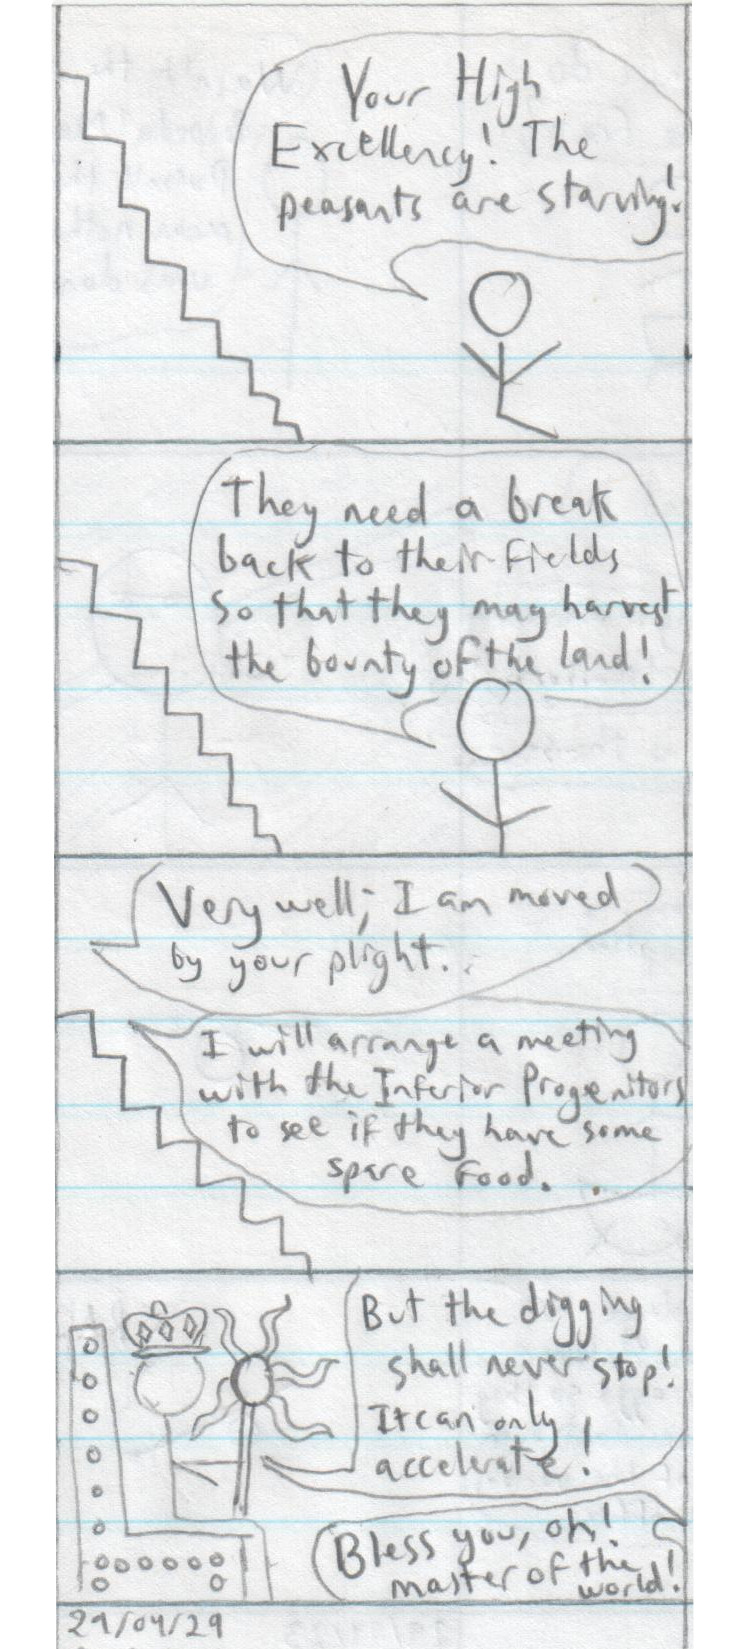 Your High
Excellency! The
peasants are starving!
They need a break
back to their fields
So that they may harvest
the bounty of the land!
Very well; I am moved
by your plight.
I will arrange a meeting
with the Inferior Progenitors
to see if they have some
spare food.
But the digging
shall never stop!
It can only
accelerate!
Bless you, oh!
master of the
world!
29/04/29